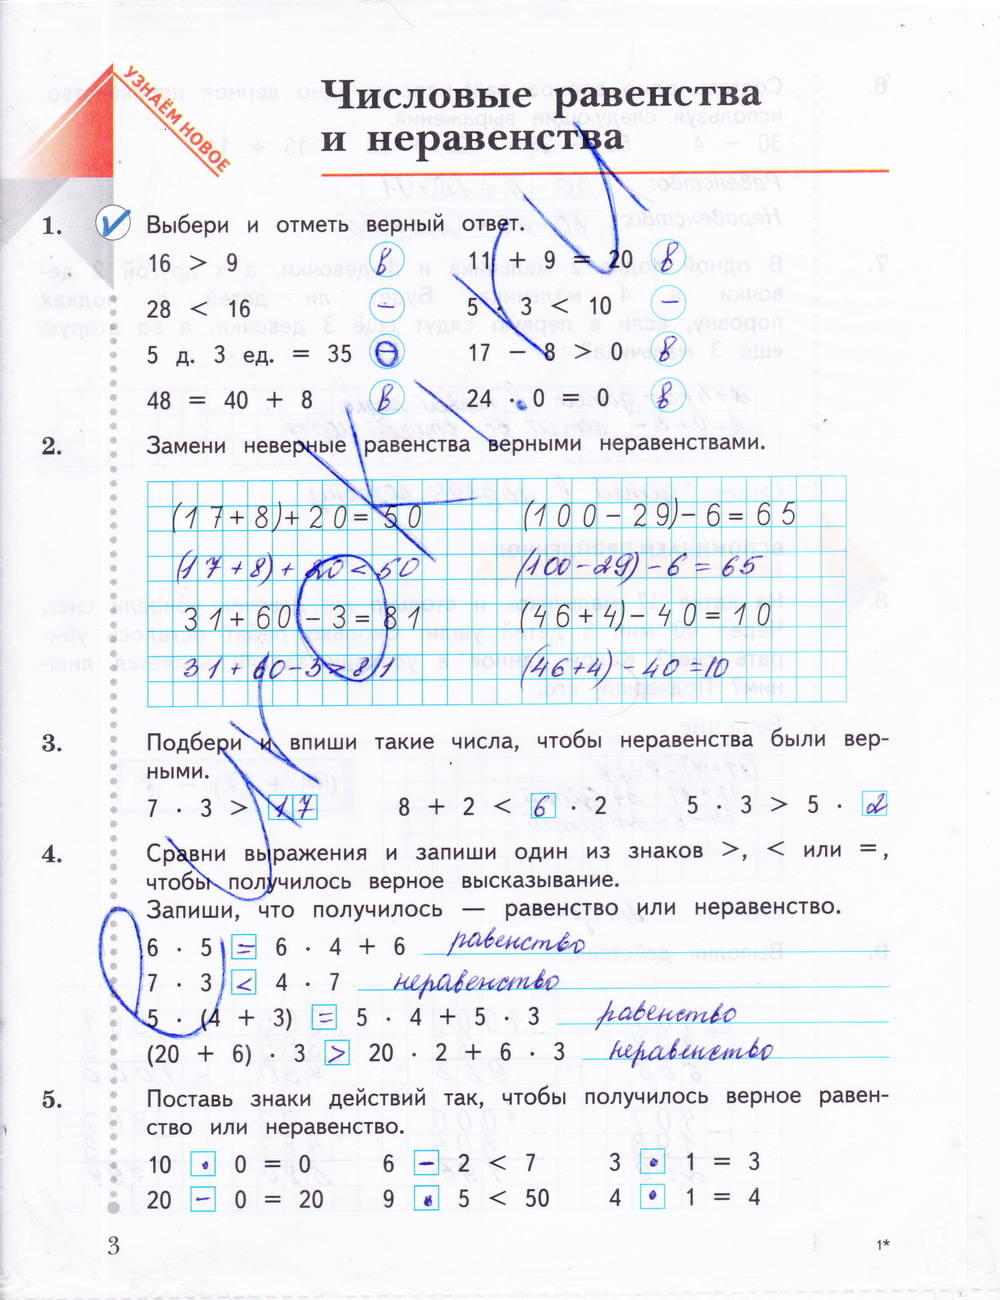 УЗНАЁМ НОВОЕ
Числовые равенства
и неравенства
1. Выбери и отметь верный ответ.
16 > 9 В 11 + 9 = 20 В
28 < 16 − 5 · 3 < 10 −
5 д. 3 ед. = 35 − 17 − 8 > 0 В
48 = 40 + 8 В 24 · 0 = 0 В
2. Замени неверные равенства верными неравенствами.
(17+8)+20=50 (100−29)−6=65
(17+8)+20<50 (100−29)−6=65
31+60−3=81 (46+4)−40=10
31+60−3>81 (46+4)−40=10
3. Подбери и впиши такие числа, чтобы неравенства были вер-
ными.
7 · 3 > 17 8 + 2 < 6 · 2 5 · 3 > 5 · 2
4. Сравни выражения и запиши один из знаков >, < или =,
чтобы получилось верное высказывание.
Запиши, что получилось — равенство или неравенство.
6 · 5 = 6 · 4 + 6 равенство
7 · 3 < 4 · 7 неравенство
5 · (4 + 3) = 5 · 4 + 5 · 3 равенство
(20 + 6) · 3 > 20 · 2 + 6 · 3 неравенство
5. Поставь знаки действий так, чтобы получилось верное равен-
ство или неравенство.
10 · 0 = 0 6 − 2 < 7 3 · 1 = 3
20 − 0 = 20 9 · 5 < 50 4 · 1 = 4
3 1*